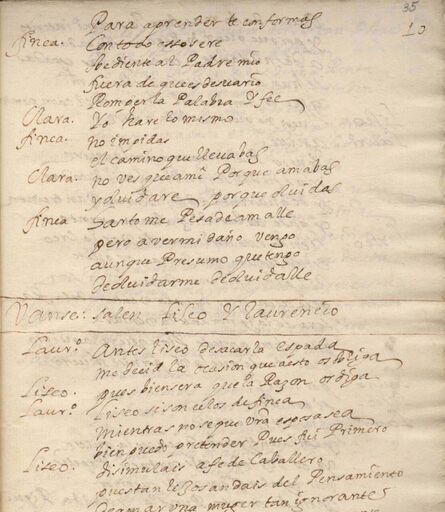 35
10
Para aprender te conformas
finea. Con todo esso sere
obediente al Padre mio
fuera de que es desvario
Romper la Palabra y fee
Clara. Yo hare lo mismo
finea. no impidas
el camino que llevabas
Clara. no ves que ami Porque amabas
y olvidare porque olvidas
finea Harto me Pesa de amalle
pero a ver mi daño vengo
aunque Presumo que tengo
de olvidarme de olvidalle
Vanse: salen Liseo y laurencio
Laur.º Antes liseo de sacar la espada
me decid la ocasion que a esto os obliga
Liseo. pues bien sera que la Razon os diga
Laur.º Liseo si son celos de finea
mientras no se que vra esposa sea
bien puedo pretender Pues fui Primero
Liseo. disimulais a fe de Caballero
pues tan lejos andais del Pensamiento
de amar una muger tan ignorante